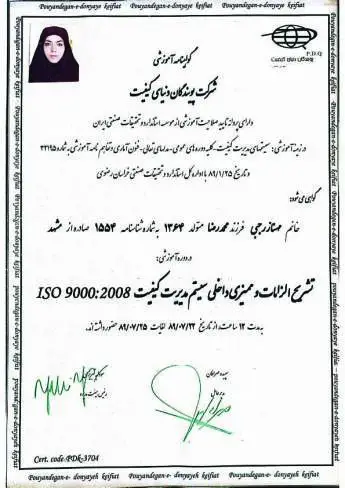 Pouyandegan-e-donyaye keifiat Pouyandegan-e-donyaye keifiat Pouyandegan-e-donyaye keifiat
P.D.Q
پویندگان دنیای کیفیت
گواهینامه آموزشی
شرکت پویندگان دنیای کیفیت
دارای پروانه تایید صلاحیت آموزشی از موسسه استاندارد و تحقیقات صنعتی ایران
در زمینه آموزشی: سیستمهای مدیریت کیفیت، کلیه دوره های عمومی، مدلهای تعالی، فنون آماری و تفاهم نامه آموزشی به شماره ۲۲۱۹۵
و تاریخ ۸۹/۱/۲۵ با اداره کل استاندارد و تحقیقات صنعتی خراسان رضوی
گواهی می شود:
خانم مهناز رجبی فرزند محمدرضا متولد ۱۳۶۴ به شماره شناسنامه ۱۵۵۴ صادره از مشهد
در دوره آموزشی:
تشریح الزامات و ممیزی داخلی سیستم مدیریت کیفیت ISO 9000:2008
به مدت ۱۲ ساعت از تاریخ ۸۹/۰۷/۲۲ لغایت ۸۹/۰۷/۲۵ حضور داشته اند.
مدیر عامل
رئیس هیئت مدیره
Cert. code:PDk-3704
Pouyandegan-e- donyayeh keifiat Pouyandegan-e- donyayeh keifiat Pouyandegan-e- donyayeh keifiat